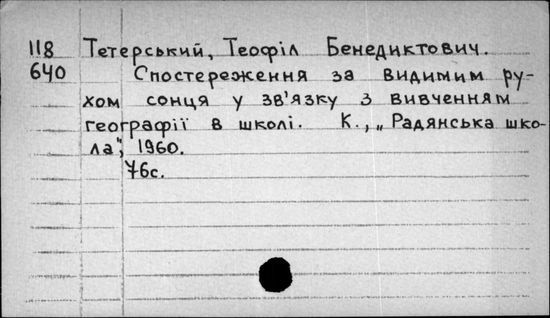 118 Тетерський, Теофіл Бенедиктович.
640 Спостереження за видимим ру-
хом сонця у зв'язку з вивченням
географії в школі. К., „Радянська шко-
ла", 1960.
76с.